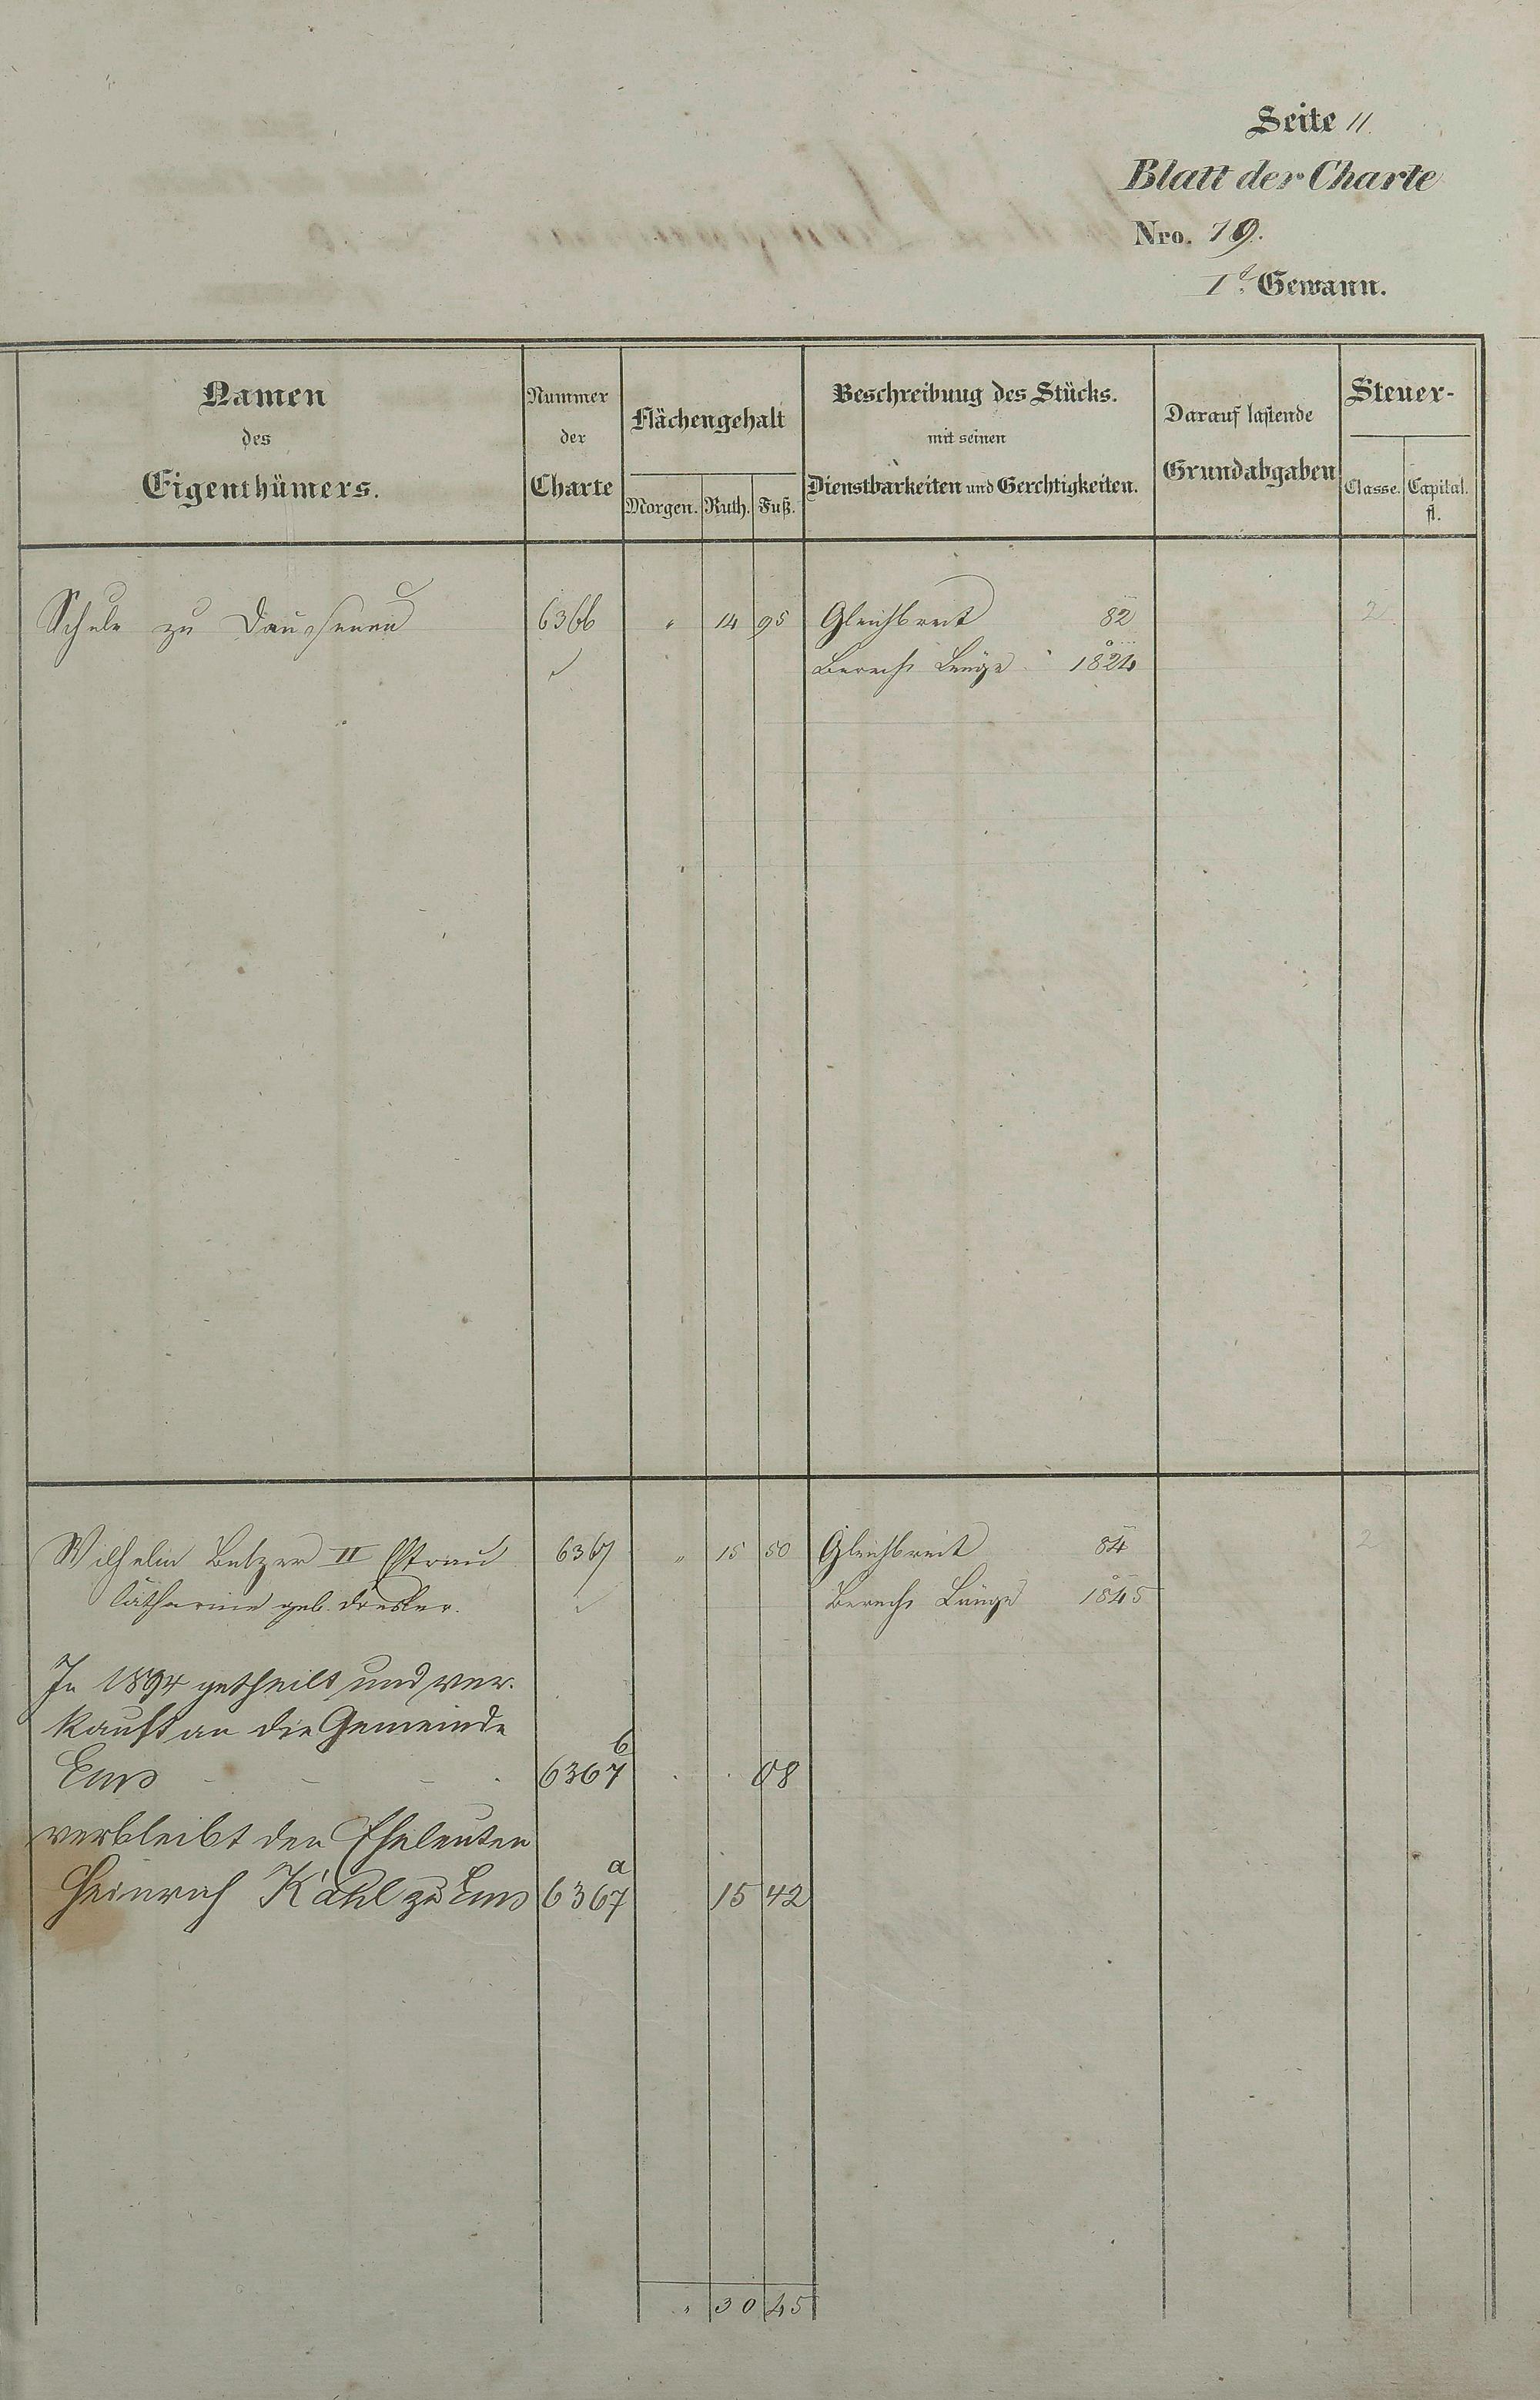 Seite 11.
Blatt der Charte
Nro. 19.
1t. Gewann.
Namen
des
Eigenthümers.
Nummer
der
Charte
Flächengehalt
Morgen. Ruth. Fuß.
Beschreibung des Stücks.
mit seinen
Dienstbarkeiten und Gerechtigkeiten.
Darauf lastende
Grundabgaben
Steuer-
Classe. Capital.
fl.
Schule zu Dausenau 6366 " 14 95 Gleichbreit 82 2
Berech Länge 1824
Wilhelm Balzer II Ehfrau 6367 " 15 50 Gleichbreit 84 2
Catharine geb. Drexler. Berech Länge 1845
In 1894 getheilt und ver-
kauft an die Gemeinde
Ems - - - 6367 b . . 08
verbleibt den Eheleuten
Heinrich Kahl zu Ems 6367 a 15 42
" 30 45